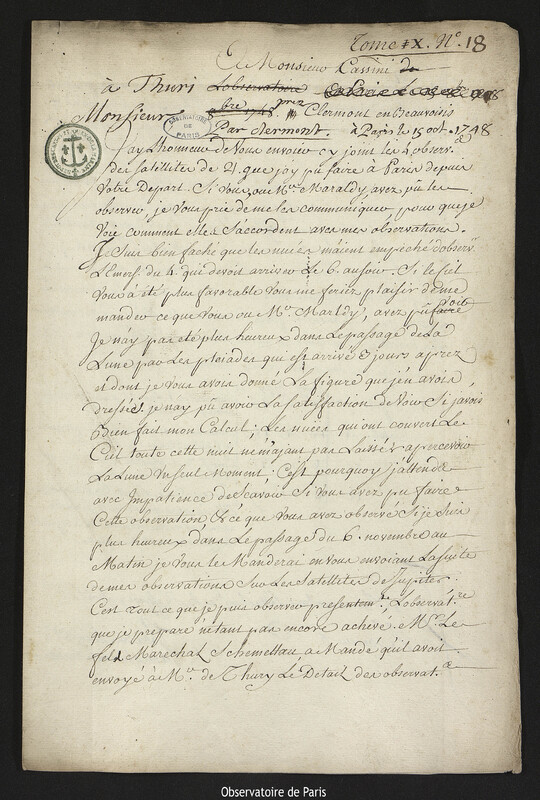 Tome IX. N.º 18
A Monsieur Cassini de
à Thuri Lobservatoire
Monsieur 8bre 1748 Clermont en Beauvoisis
OBSERVATOIRE DE PARIS
Par Clermont. à Paris le 15 oct. 1748
Jay Lhonneur de Vous envoier cy joint les 4 observ.
des satellites de 2l. que j'oy pû faire à Paris depuis
Votre Depart. Si Vous, ou Mr. Maraldy avez pû les
observer, je Vous prie de me les communiquer, pour que je
Voie comment elles S'accordent avec mes observations.
Je Suis bien faché que les nuées m'aient empeché d'observ.
L'Emers. du 4. qui devoit arriver Le 6. au soir. Si le Ciel
Vous à été plus favorable Vous me feriez plaisir de me
mander ce que Vous ou Mr. Marldy, avez pû faire voir
Je n'ay pas eté plus heureux dans Le passage de La
Lune par Les pleiades qui est arrivé 3 jours aprez
et dont je Vous avois donné La figure que j'en avois
Dressée. je nay pû avoir La satisfaction de Voir Si javois
bien fait mon Calcul; Les nuées qui ont couvert Le
Ciel toute cette nuit ne m'ajant pas Laissé apercevoir
La Lune Un seul Moment: C'est pourquoy j'attends
avec Impatience de scavoir Si Vous avez pu faire
Cette observation & ce que Vous avez observé. Si je Suis
plus heureux dans Le passage du 6. novembre au
Matin je Vous le Manderai en vous envoiant La suite
de mes observations Sur Les Satellites de Jupiter.
C'est Tout ce que je puis observer presentem.t, L'observat.re
que je prepare n'étant pas encore achevé. Mr. Le
feld Marechal Schemettau a Mandé qu'il avoit
envoyé à Mr. de Thury Le Detail des observat.
Observatoire de Paris